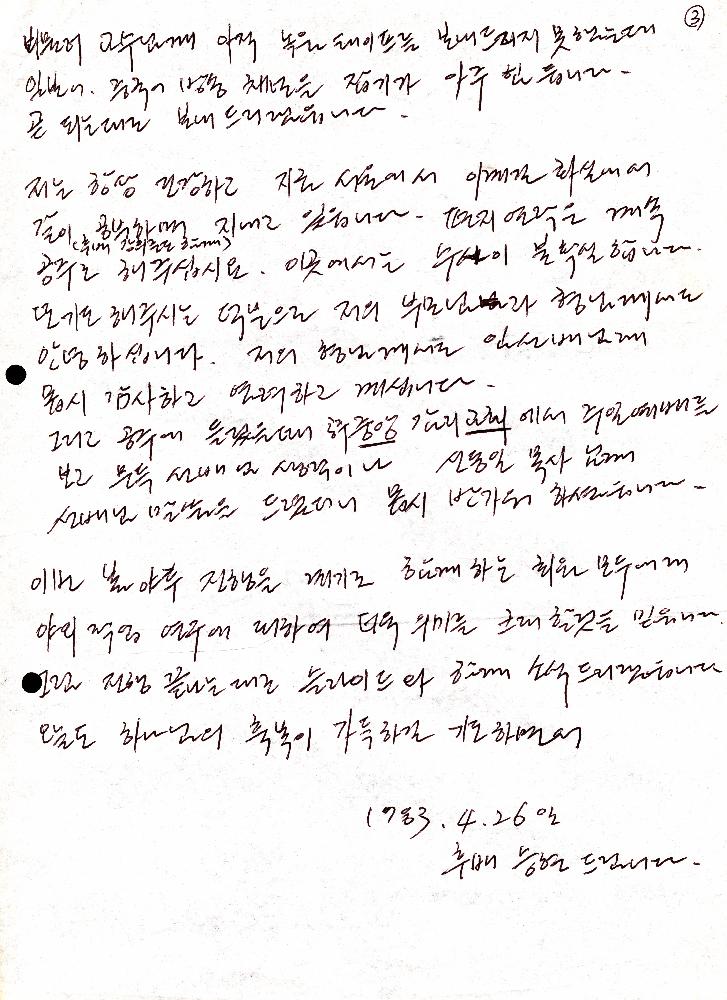 ③
교수님께 아직 녹음 테이프를 보내드리지 못했는데
일본어. 중국어 방송 채널을 잡기가 아주 힘듭니다.
곧 되는대로 보내 드리겠읍니다.
저는 항상 건강하고 지금 서울에서 이께른 화실에서
같이 공부하며 지내고 있읍니다. 편지 연락은 계속
(후배 함께)
공주로 해주십시요. 이곳에서는 수신이 불확실 합니다.
또 기도 해주시는 덕분으로 저의 부모님과 형님께서도
안녕하십니다. 저의 형님께서도 임선배님께
몹시 감사하고 염려하고 계십니다.
그리고 공주에 들렀을때 중앙 감리교회에서 주일예배를
보고 문득 선배님 생각이나 선동일 목사님께
선배님 말씀을 드렸더니 몹시 반가워 하셨읍니다.
이번 봄 야투 진행을 계기로 함께 하는 회원 모두에게
야외 작업 연구에 대하여 더욱 의미를 크게 할것을 믿읍니다.
그럼 진행 끝나는대로 슬라이드와 함께 소식 드리겠읍니다
오늘도 하나님의 축복이 가득하길 기도하면서
1983. 4. 26일
후배 승현 드립니다.